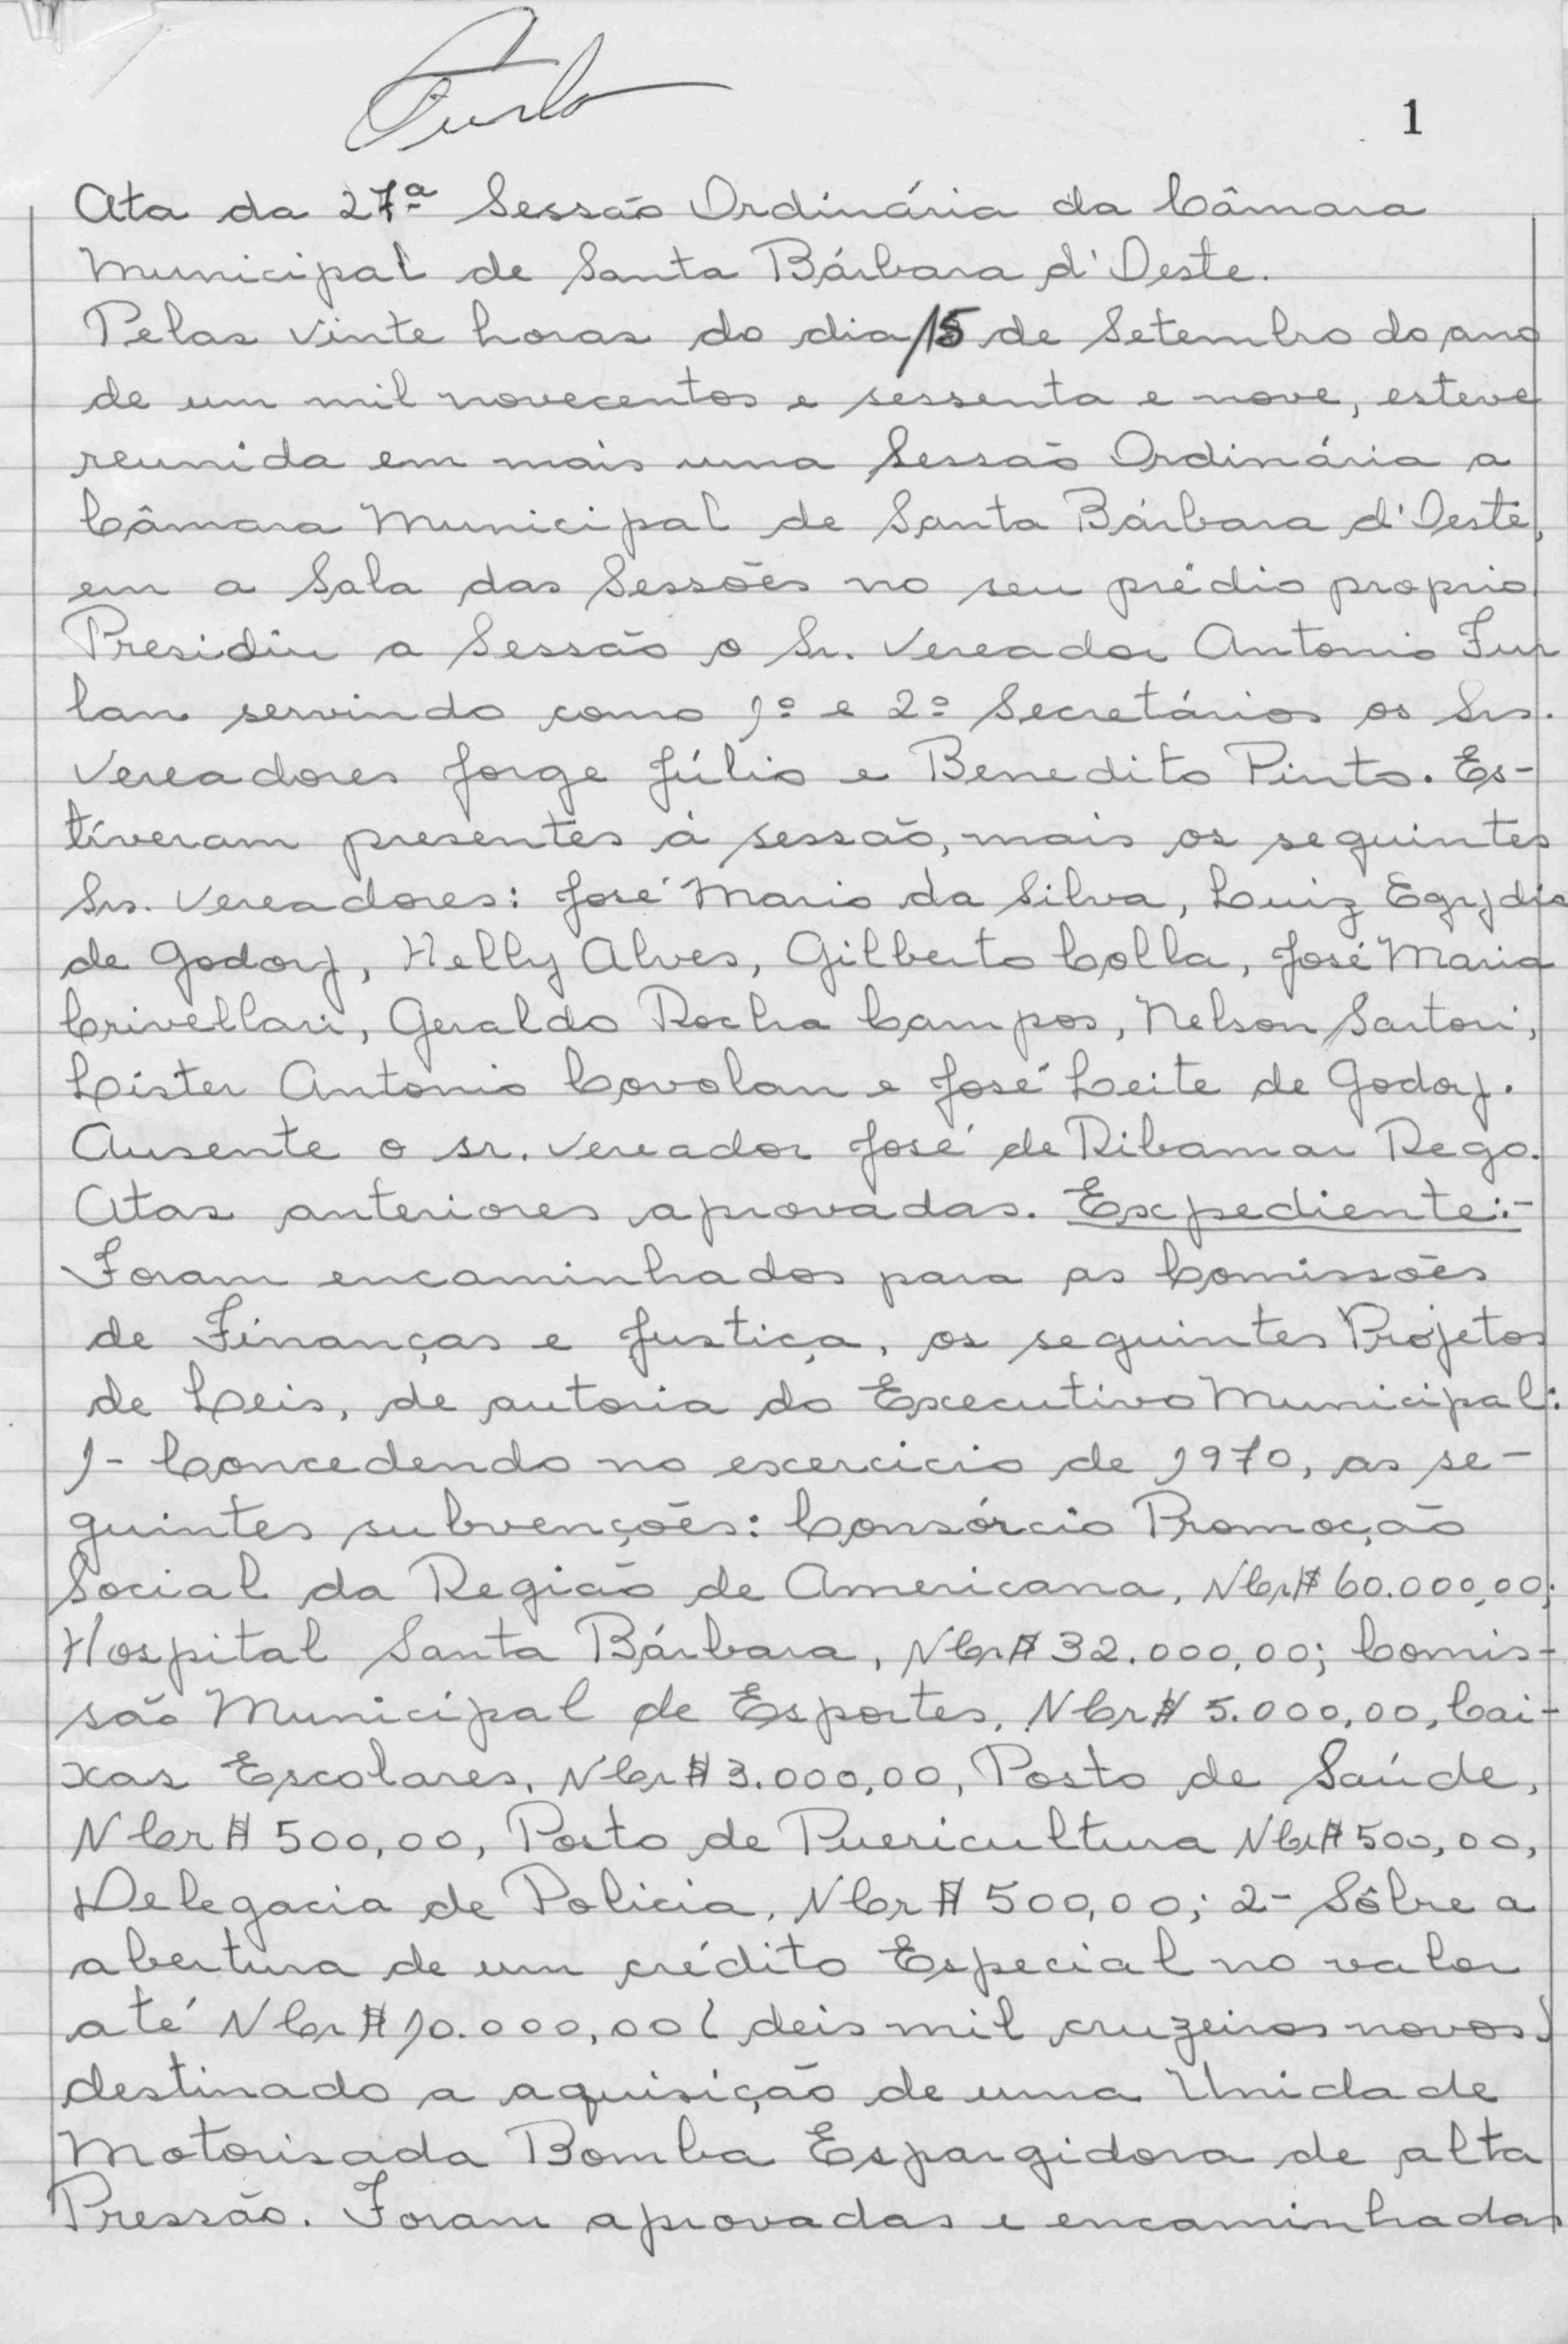 1
Ata da 27ª Sessão Ordinária da Câmara
Municipal de Santa Bárbara d'Oeste.
Pelas vinte horas do dia 15 de Setembro do ano
de um mil novecentos e sessenta e nove, esteve
reunida em mais uma Sessão Ordinária a
Câmara Municipal de Santa Bárbara d'Oeste,
em a Sala das Sessões no seu prédio proprio.
Presidiu a Sessão o Sr. Vereador Antonio Fur
lan servindo como 1º e 2º Secretários os Srs.
Vereadores Jorge Júlio e Benedito Pinto. Es-
tiveram presentes á sessão, mais os seguintes
Srs. Vereadores: José Mario da Silva, Luiz Egydio
de Godoy, Helly Alves, Gilberto Colla, José Maria
Crivellari, Geraldo Rocha Campos, Nelson Sartori,
Lister Antonio Covolan e José Leite de Godoy.
Ausente o sr. vereador José de Ribamar Rego.
Atas anteriores aprovadas. Expediente:-
Foram encaminhados para as Comissões
de Finanças e Justiça, os seguintes Projetos
de Leis, de autoria do Executivo Municipal:
1- Concedendo no exercicio de 1970, as se-
guintes subvenções: Consórcio Promoção
Social da Região de Americana, NCr$ 60.000,00;
Hospital Santa Bárbara, NCr$ 32.000,00; Comis-
são Municipal de Esportes, NCr$ 5.000,00, Cai-
xas Escolares, NCr$ 3.000,00, Posto de Saúde,
NCr$ 500,00, Posto de Puericultura NCr$ 500,00,
Delegacia de Policia, NCr$ 500,00; 2- Sôbre a
abertura de um crédito Especial no valor
até NCr$ 10.000,00 ( deis mil cruzeiros novos)
destinado a aquisição de uma Unidade
Motorisada Bomba Espargidora de alta
Pressão. Foram aprovadas e encaminhadas